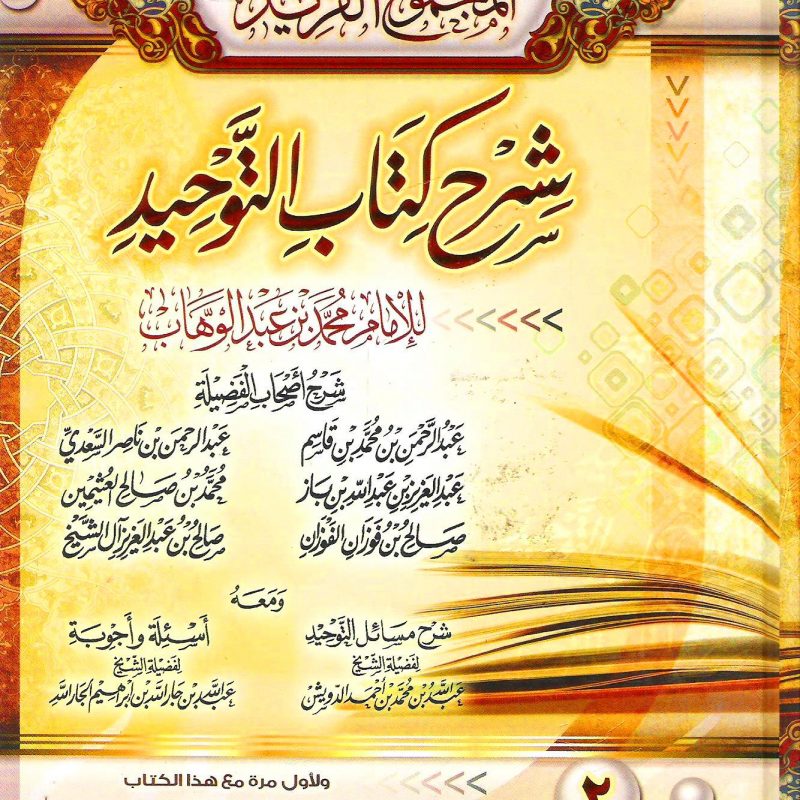 المجموع الفريد
شرح كتاب التوحيد
للإمام محمد بن عبد الوهاب
شرح أصحاب الفضيلة
عبد الرحمن بن محمد بن قاسم عبد الرحمن بن ناصر السعدي
عبد العزيز بن عبد الله بن باز محمد بن صالح العثيمين
صالح بن فوزان الفوزان صالح بن عبد العزيز آل الشيخ
ومعه
شرح مسائل التوحيد أسئلة وأجوبة
لفضيلة الشيخ لفضيلة الشيخ
عبد الله بن محمد بن أحمد الدويش عبد الله بن جار الله بن إبراهيم الجار الله
ولأول مرة مع هذا الكتاب
٢